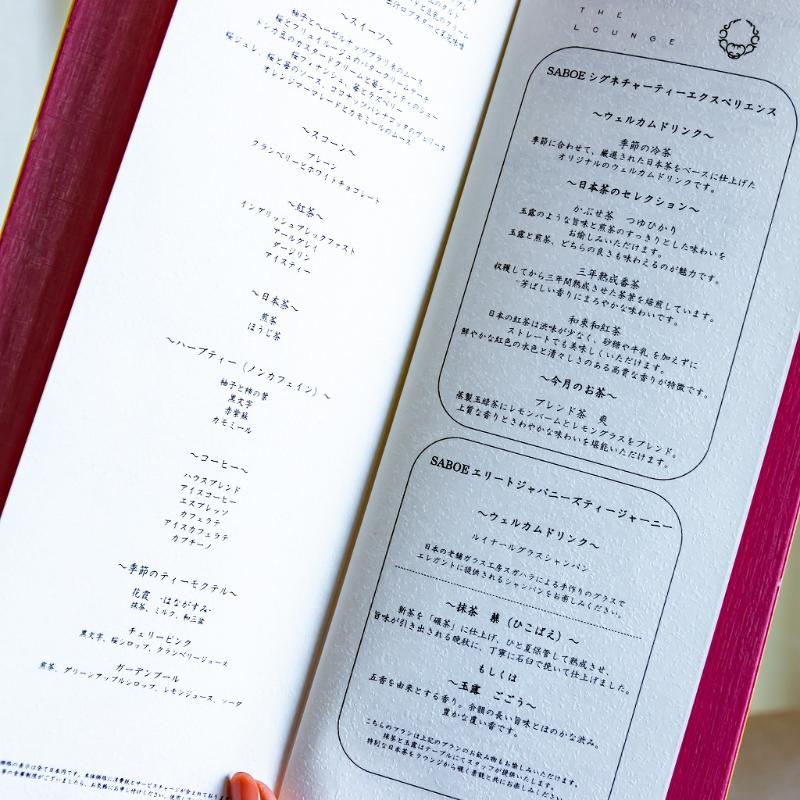 ～スイーツ～
柚子とヘーゼルナッツプラリネのムース
トンカ豆のカスタードクリームと苺シャンティのシュー
桜フィナンシェ、苺とラズベリー
オレンジマーマレードとカモミールのムース
～スコーン～
プレーン
クランベリーとホワイトチョコレート
～紅茶～
イングリッシュブレックファスト
アールグレイ
ダージリン
アイスティー
～日本茶～
煎茶
ほうじ茶
～ハーブティー（ノンカフェイン）～
柚子と柿の葉
黒文字
赤紫蘇
カモミール
～コーヒー～
ハウスブレンド
アイスコーヒー
エスプレッソ
カフェラテ
アイスカフェラテ
カプチーノ
～季節のティーモクテル～
花霞 -はながすみ-
抹茶、ミルク、和三盆
チェリーピンク
黒文字、桜シロップ、クランベリージュース
ガーデンプール
煎茶、グリーンアップルシロップ、レモンジュース、ソーダ
価格の表示は全て日本円です。本体価格に消費税とサービスチャージが含まれており
THE
LOUNGE
SABOE シグネチャーティーエクスペリエンス
～ウェルカムドリンク～
季節の冷茶
季節に合わせて、厳選された日本茶をベースに仕上げた
オリジナルのウェルカムドリンクです。
～日本茶のセレクション～
かぶせ茶 つゆひかり
玉露のような旨味と煎茶のすっきりとした味わいを
お愉しみいただけます。
玉露と煎茶、どちらの良さも味わえるのが魅力です。
三年熟成番茶
収穫してから三年間熟成させた茶葉を焙煎しています。
芳ばしい香りにまろやかな味わいです。
和束和紅茶
日本の紅茶は渋味が少なく、砂糖や牛乳を加えずに
ストレートでも美味しくいただけます。
鮮やかな紅色の水色と清々しさのある高貴な香りが特徴です。
～今月のお茶～
ブレンド茶 爽
蒸製玉緑茶にレモンバームとレモングラスをブレンド。
上質な香りとさわやかな味わいを堪能いただけます。
SABOE エリートジャパニーズティージャーニー
～ウェルカムドリンク～
ルイナールグラスシャンパン
日本の老舗ガラス工房スガハラによる手作りのグラスで
エレガントに提供されるシャンパンをお楽しみください。
～抹茶 蘖（ひこばえ）～
新茶を「碾茶」に仕上げ、ひと夏保管して熟成させ、
旨味が引き出される晩秋に、丁寧に石臼で挽いて仕上げました。
もしくは
～玉露 ごこう～
五香を由来とする香り。余韻の長い旨味とほのかな渋み。
豊かな覆い香です。
こちらのプランは上記のプランのお飲み物もお愉しみいただけます。
抹茶と玉露はテーブルにてスタッフが提供いたします。
特別な日本茶をラウンジから覗く景観と共にお楽しみください。